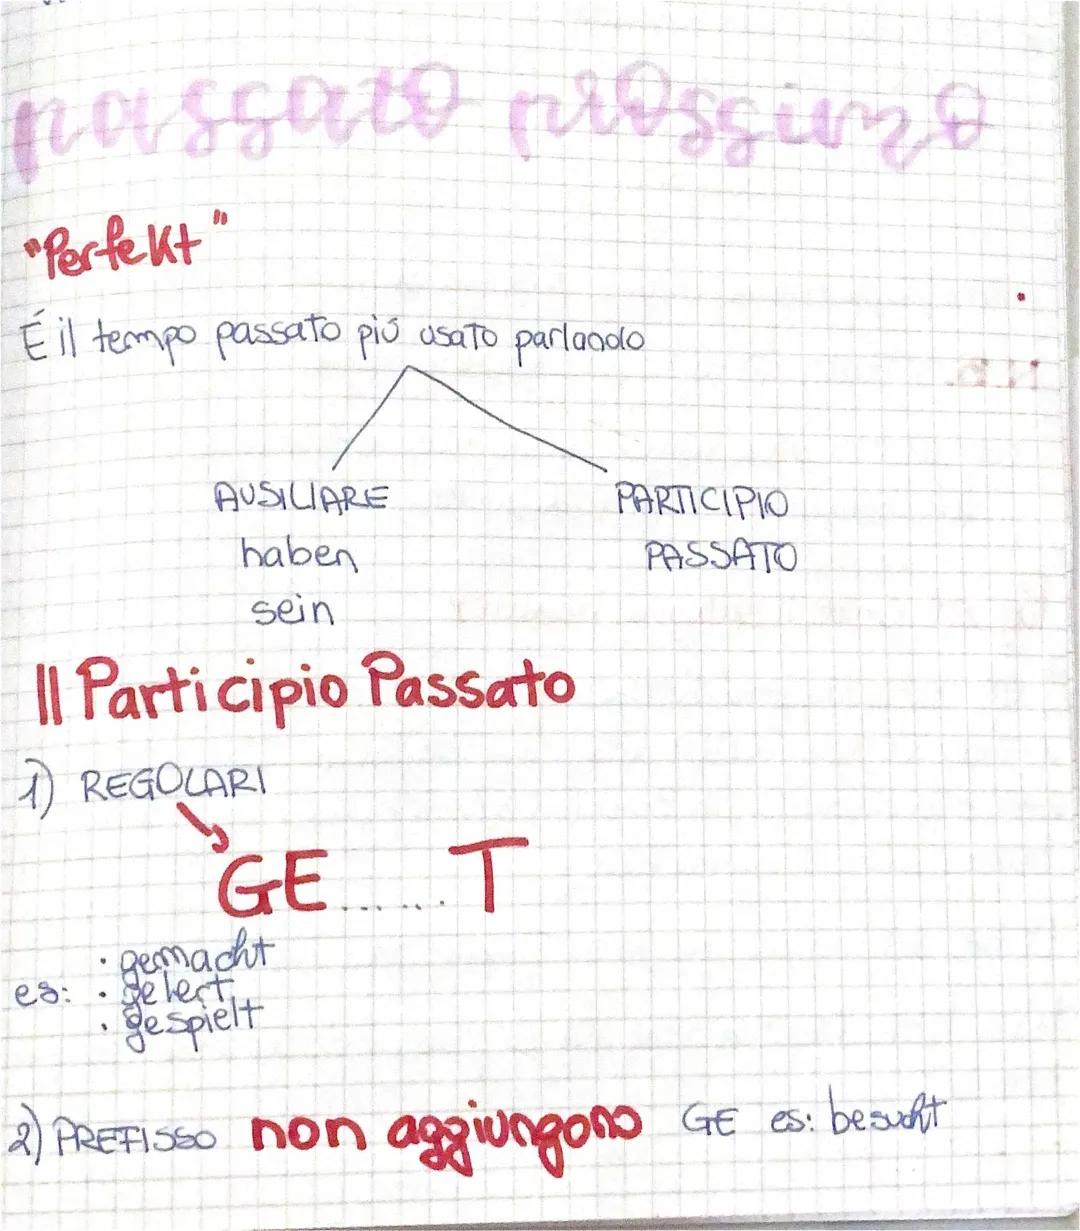 passato prossimo
"Perfekt"
É il tempo passato più usato parlando
AUSILIARE
haben
sein
PARTICIPIO
PASSATO
Il Participio Passato
1) REGOLARI
GE...... T
es:
· gemacht
· gelert
· gespielt
2) PREFISSO non aggiungono GE es: besucht